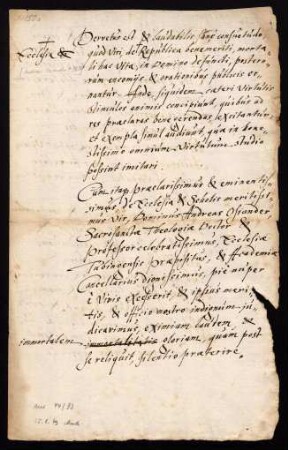 Ecclesia &
Decretus est & laudabilis
quod Viri, de Republica benemeriti, morta-
li hac Vita, in Domino defuncti, postero-
rum encomijs & orationibus publicis or-
nantur. siquidem, cæteri Virtutis
stimulos animis concipiunt, quibus ad
res præclaras bene gerendas excitantur,
et exempla simul audiunt, quæ in hone-
stissimo omnium Virtutum studio
possint imitari.
Cum itaq præclarissimus & eminentis-
simus, de Ecclesia & Scholis meritissi-
mus Vir, Dominus Andreas Osiander
Sacrosanctæ Theologiæ Doctor &
Professor celebratissimus, Ecclesiæ
Tubingensis Præpositus, & Academiæ
Cancellarius dignissimus, pie nuper
è Vivis excesserit, & ipsius meri-
tis, & officio nostro indignum ju-
dicavimus, eximiam laudem, &
immortalem gloriam, quam post
se reliquit, silentio præterire.